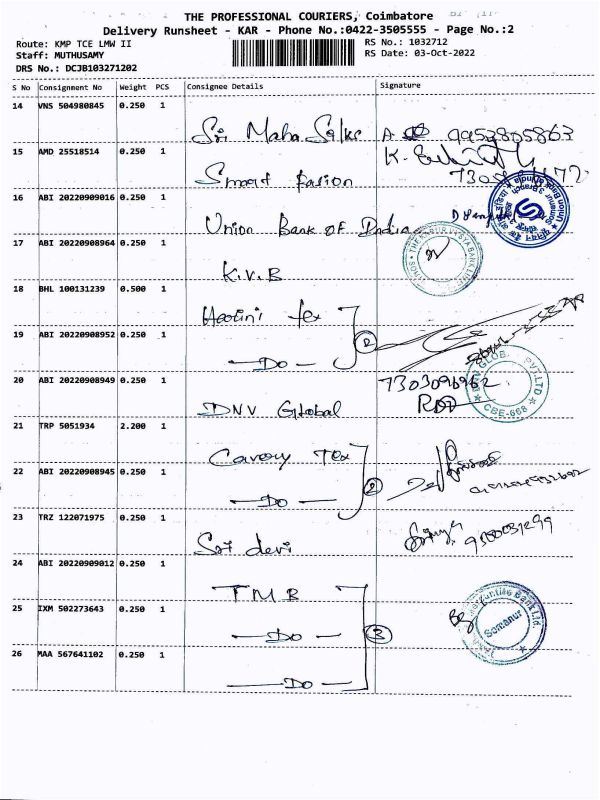 THE PROFESSIONAL COURIERS, Coimbatore
Delivery Runsheet - KAR - Phone No.:0422-3505555 - Page No.:2
Route: KMP TCE LMW II
RS No.: 1032712
Staff: MUTHUSAMY
RS Date: 03-Oct-2022
DRS No.: DCJB103271202
S No Consignment No Weight PCS Consignee Details Signature
14 VNS 504980845 0.250 1
Sri Maha Selks 9953805863
15 AMD 25518514 0.250 1
K.
Smart fasion
16 ABI 20220909016 0.250 1
Union Bank of India
17 ABI 20220908964 0.250 1
K.V.B
18 BHL 100131239 0.500 1
Haotini Tex
19 ABI 20220908952 0.250 1
2
Do
20 ABI 20220908949 0.250 1
7303090962
DNV Global
CBE-668
PVT.LTD
21 TRP 5051934 2.200 1
Cavery Tex
22 ABI 20220908945 0.250 1
2
Do
23 TRZ 122071975 0.250 1
Sri devi
24 ABI 20220909012 0.250 1
TMB
25 IXM 502273643 0.250 1
Do 3
Somanur
26 MAA 567641102 0.250 1
Do